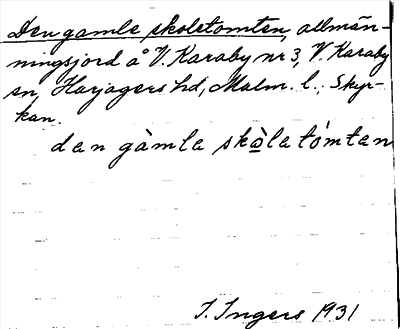 Den gamle skoletomten, allmän-
ningsjord å V. Karaby nr 3, V. Karaby
sn, Harjagers hd, Malm. l.; Skyr-
kan.
den gàmla skàlatómtan
I. Ingers 1931